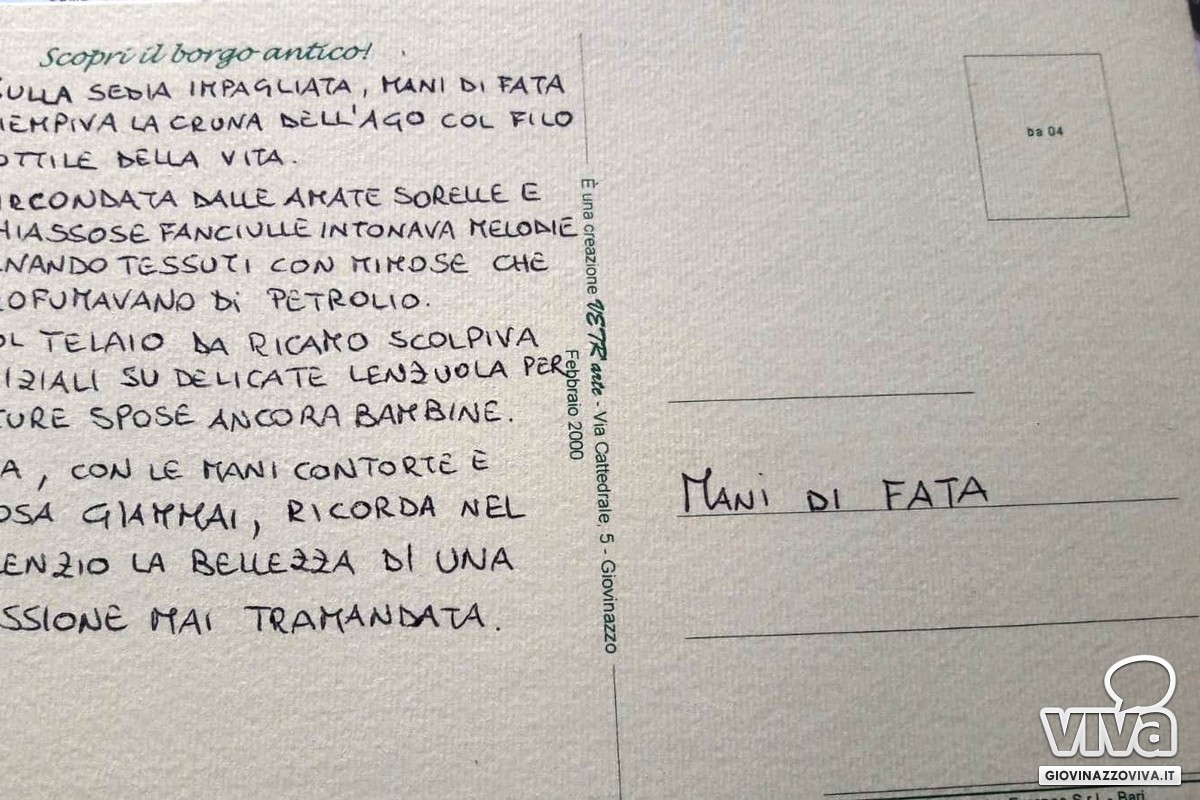 Scopri il borgo antico!
SULLA SEDIA IMPAGLIATA, MANI DI FATA
IEMPIVA LA CRUNA DELL'AGO COL FILO
OTTILE DELLA VITA.
IRCONDATA DALLE AMATE SORELLE E
HIASSOSE FANCIULLE INTONAVA MELODIE
NANDO TESSUTI CON MIMOSE CHE
ROFUMAVANO DI PETROLIO.
OL TELAIO DA RICAMO SCOLPIVA
IZIALI SU DELICATE LENZUOLA PER
TURE SPOSE ANCORA BAMBINE.
A, CON LE MANI CONTORTE E
OSA GIAMMAI, RICORDA NEL
LENZIO LA BELLEZZA DI UNA
SSIONE MAI TRAMANDATA.
È una creazione VETR'arte - Via Cattedrale, 5 - Giovinazzo
Febbraio 2000
ba 04
MANI DI FATA
S.r.l. - Bari
viva
GIOVINAZZOVIVA.IT